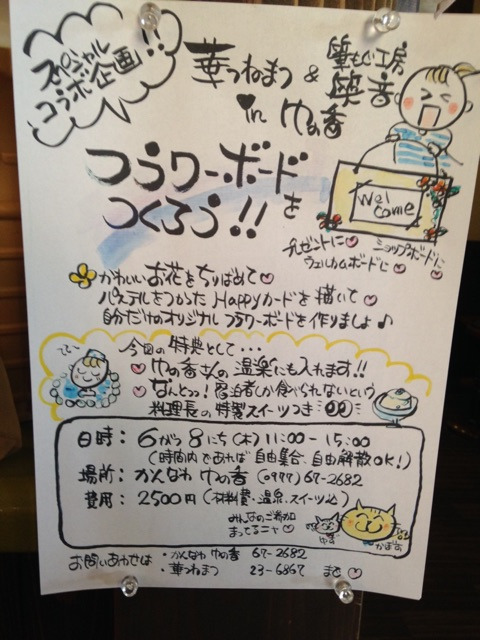 スペシャル
コラボ企画!!
華つねまつ & 筆もじ工房
笑音
in ゆの香
フラワーボードを
つくろう!!
Welcome
プレゼントに♡ ショップボードに
ウェルカムボードに♡
かわいいお花をちりばめて♡
パステルをつかった Happyカードを描いて♡
自分だけのオリジナル フラワーボードを作りましょ♪
今回の特典として・・・
♡ ゆの香さんの温泉にも入れます!!
♡ なんとっ!宿泊者しか食べられないという
料理長の特製スイーツつき
日時: 6がつ8にち(木) 11:00-15:00
(時間内であれば自由集合、自由解散OK!)
場所: かんなわ ゆの香 (0977)67-2682
費用: 2500円 (材料費・温泉、スイーツ込)
みんなのご参加
まってるニャ♡
ゆず かぼす
お問いあわせは ・かんなわ ゆの香 67-2682
・華つねまつ 23-6867 まで♡